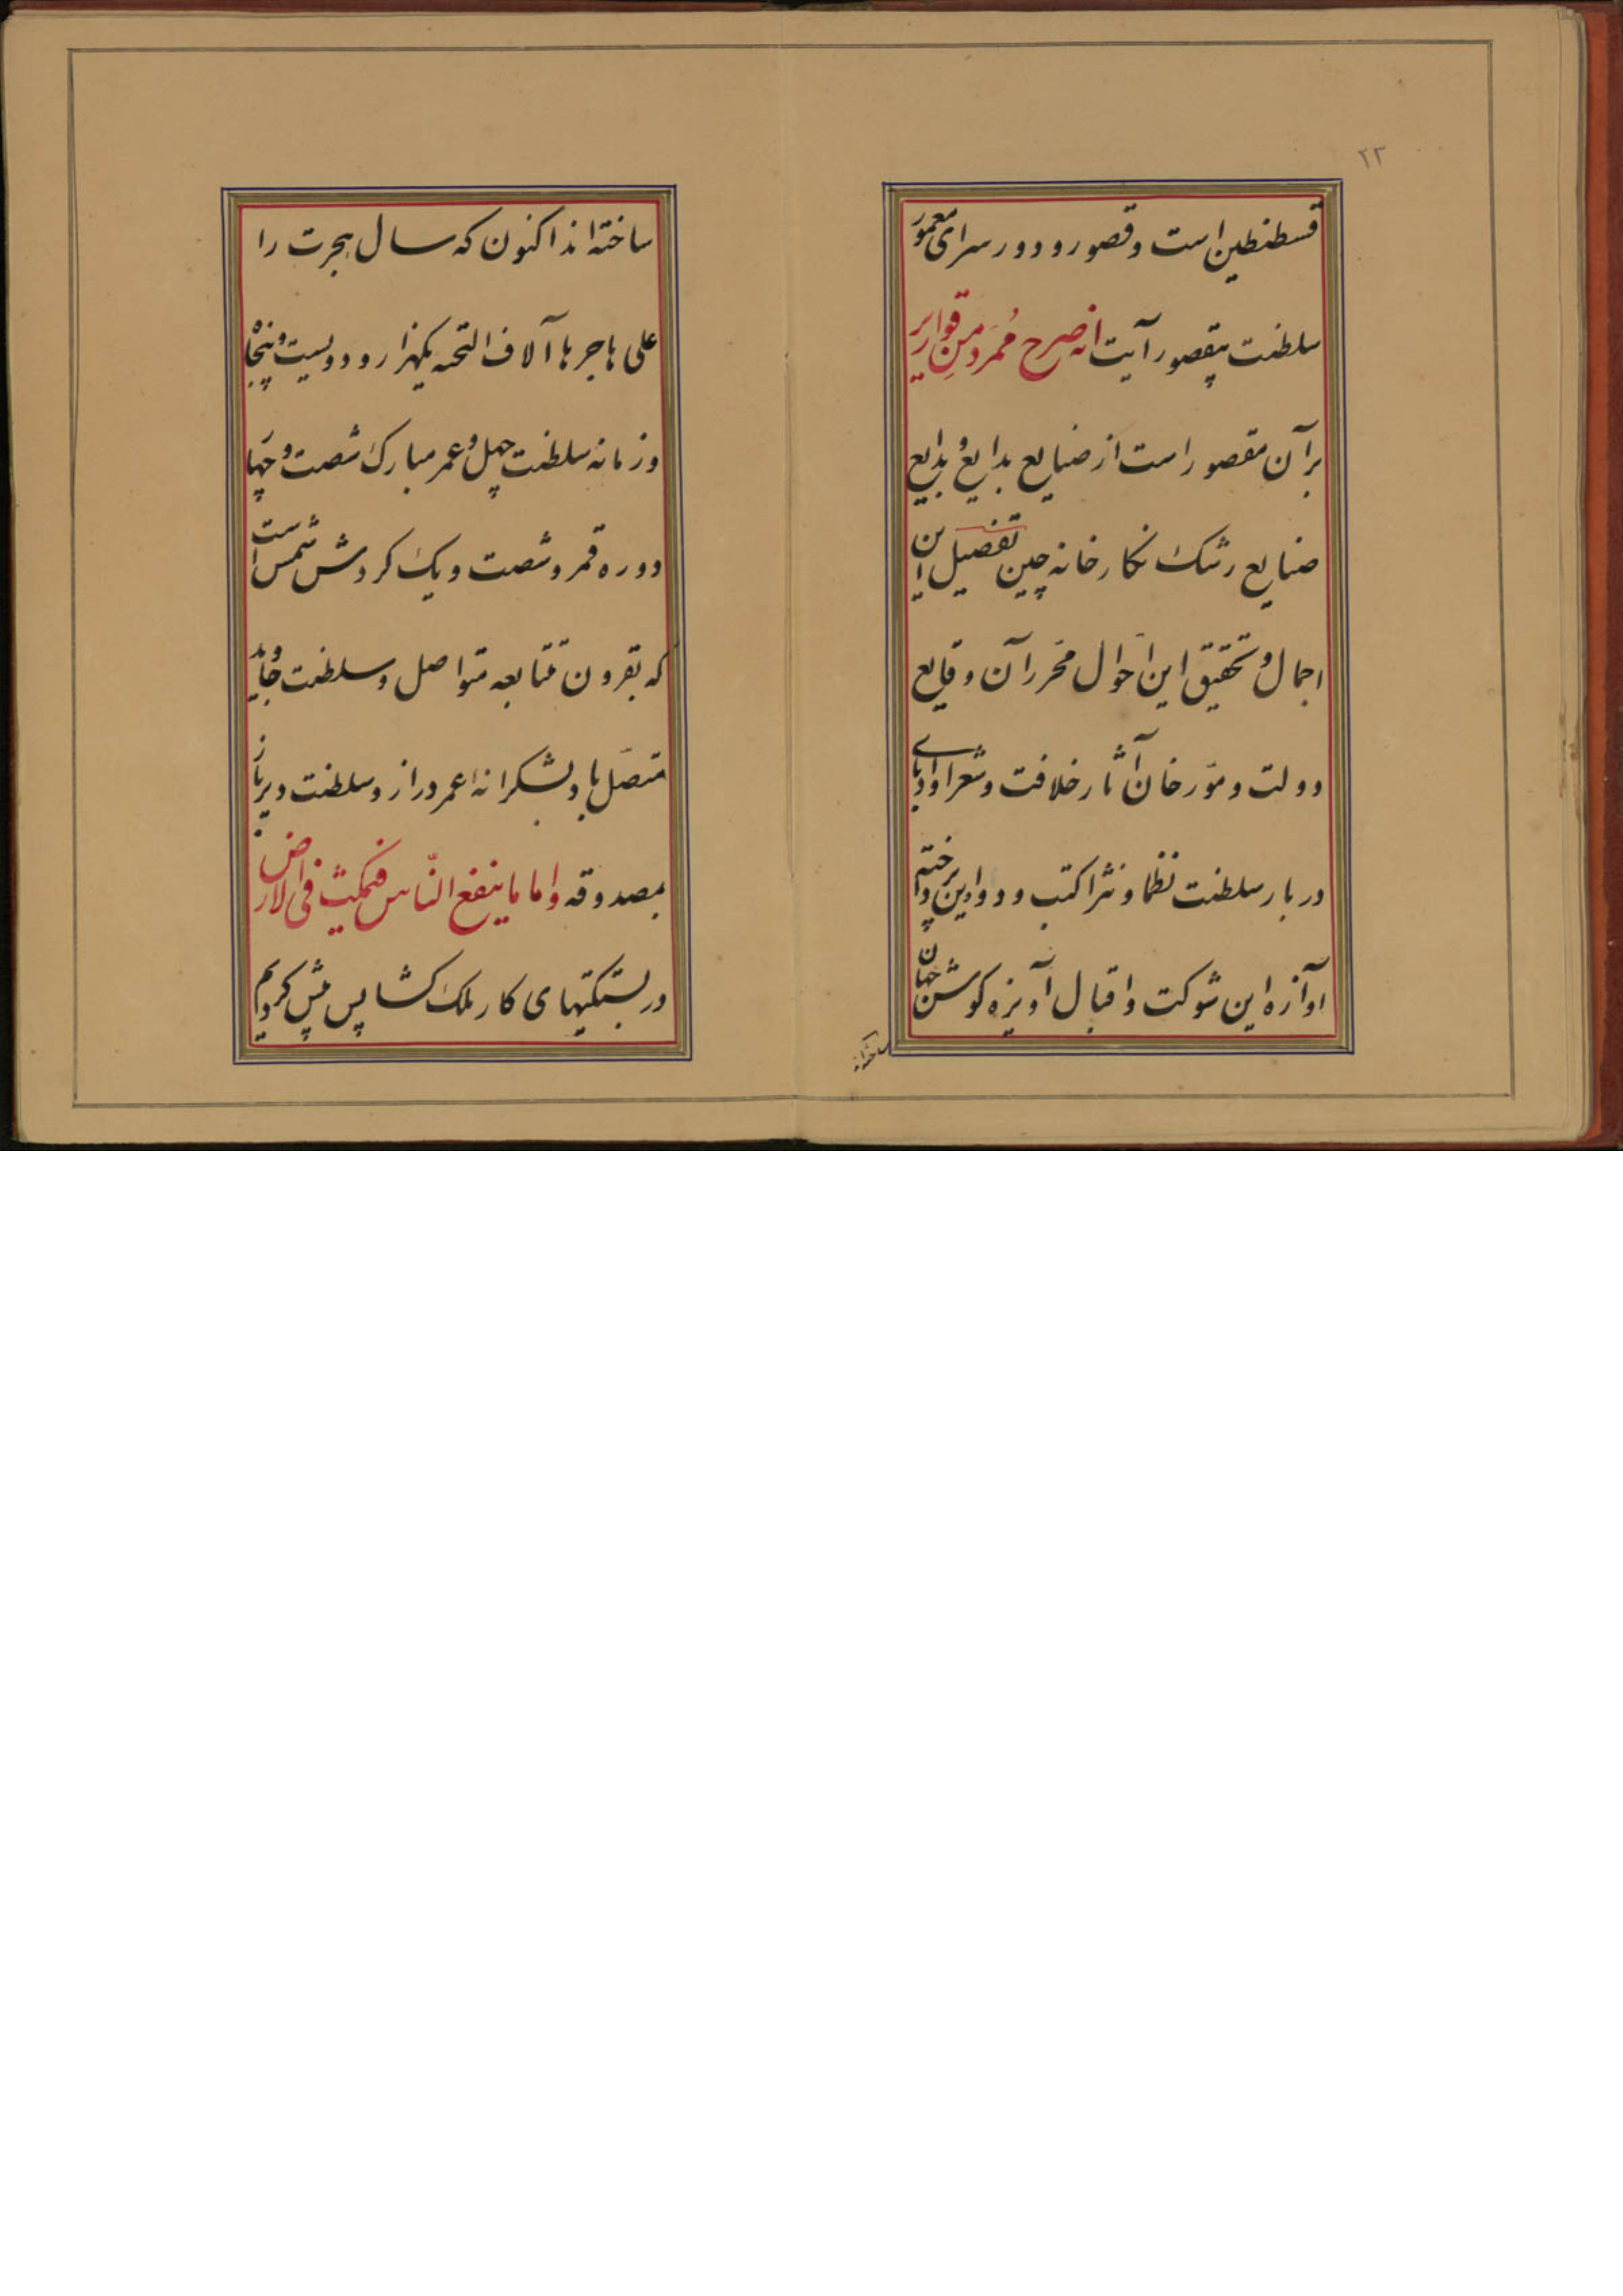 ٢٢
قسطنطین است و قصور و دور سرای معمور
سلطنت بیقصور آیت انه صرح مُمَرد مِن قواریر
بر آن مقصور است از صنایع بدایع و بدایع
صنایع رشک نکارخانه چین تفصیل این
اجمال و تحقیق این احوال محرر آن وقایع
دولت و مورخان آثار خلافت و شعرا و ادبای
دربار سلطنت نظما و نثرا کتب و دواوین پرداخته
آوازه این شوکت و اقبال آویزه کوش جهان
ساخته‌اند
ساخته‌اند اکنون که سال هجرت را
علی هاجرها آلاف التحیه یکهزار و دویست و پنجاه
و زمانه سلطنت چهل و عمر مبارک شصت و چهار
دوره قمر و شصت و یک کردش شمس است
که بقرون متتابعه متواصل و سلطنت جاوید
متصل باد بشکرانهٔ عمر دراز و سلطنت دیرباز
بمصدوقه واما ما ینفع النّاس فیمکث فی الارض
در بستکیهای کار ملک کشایش پیش کردیم